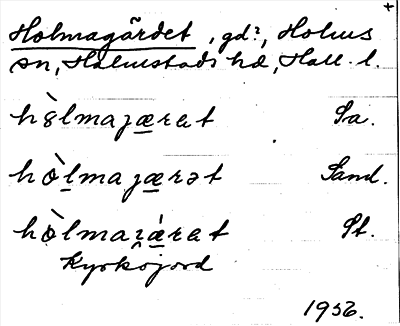 +
Holmagärdet, gd?, Holms
sn, Halmstads hd, Hall. l.
hòlmajæret Sa.
hòlmajærət Sand.
hòlmaɿæ̀ret St.
Kyrkojord
1956.